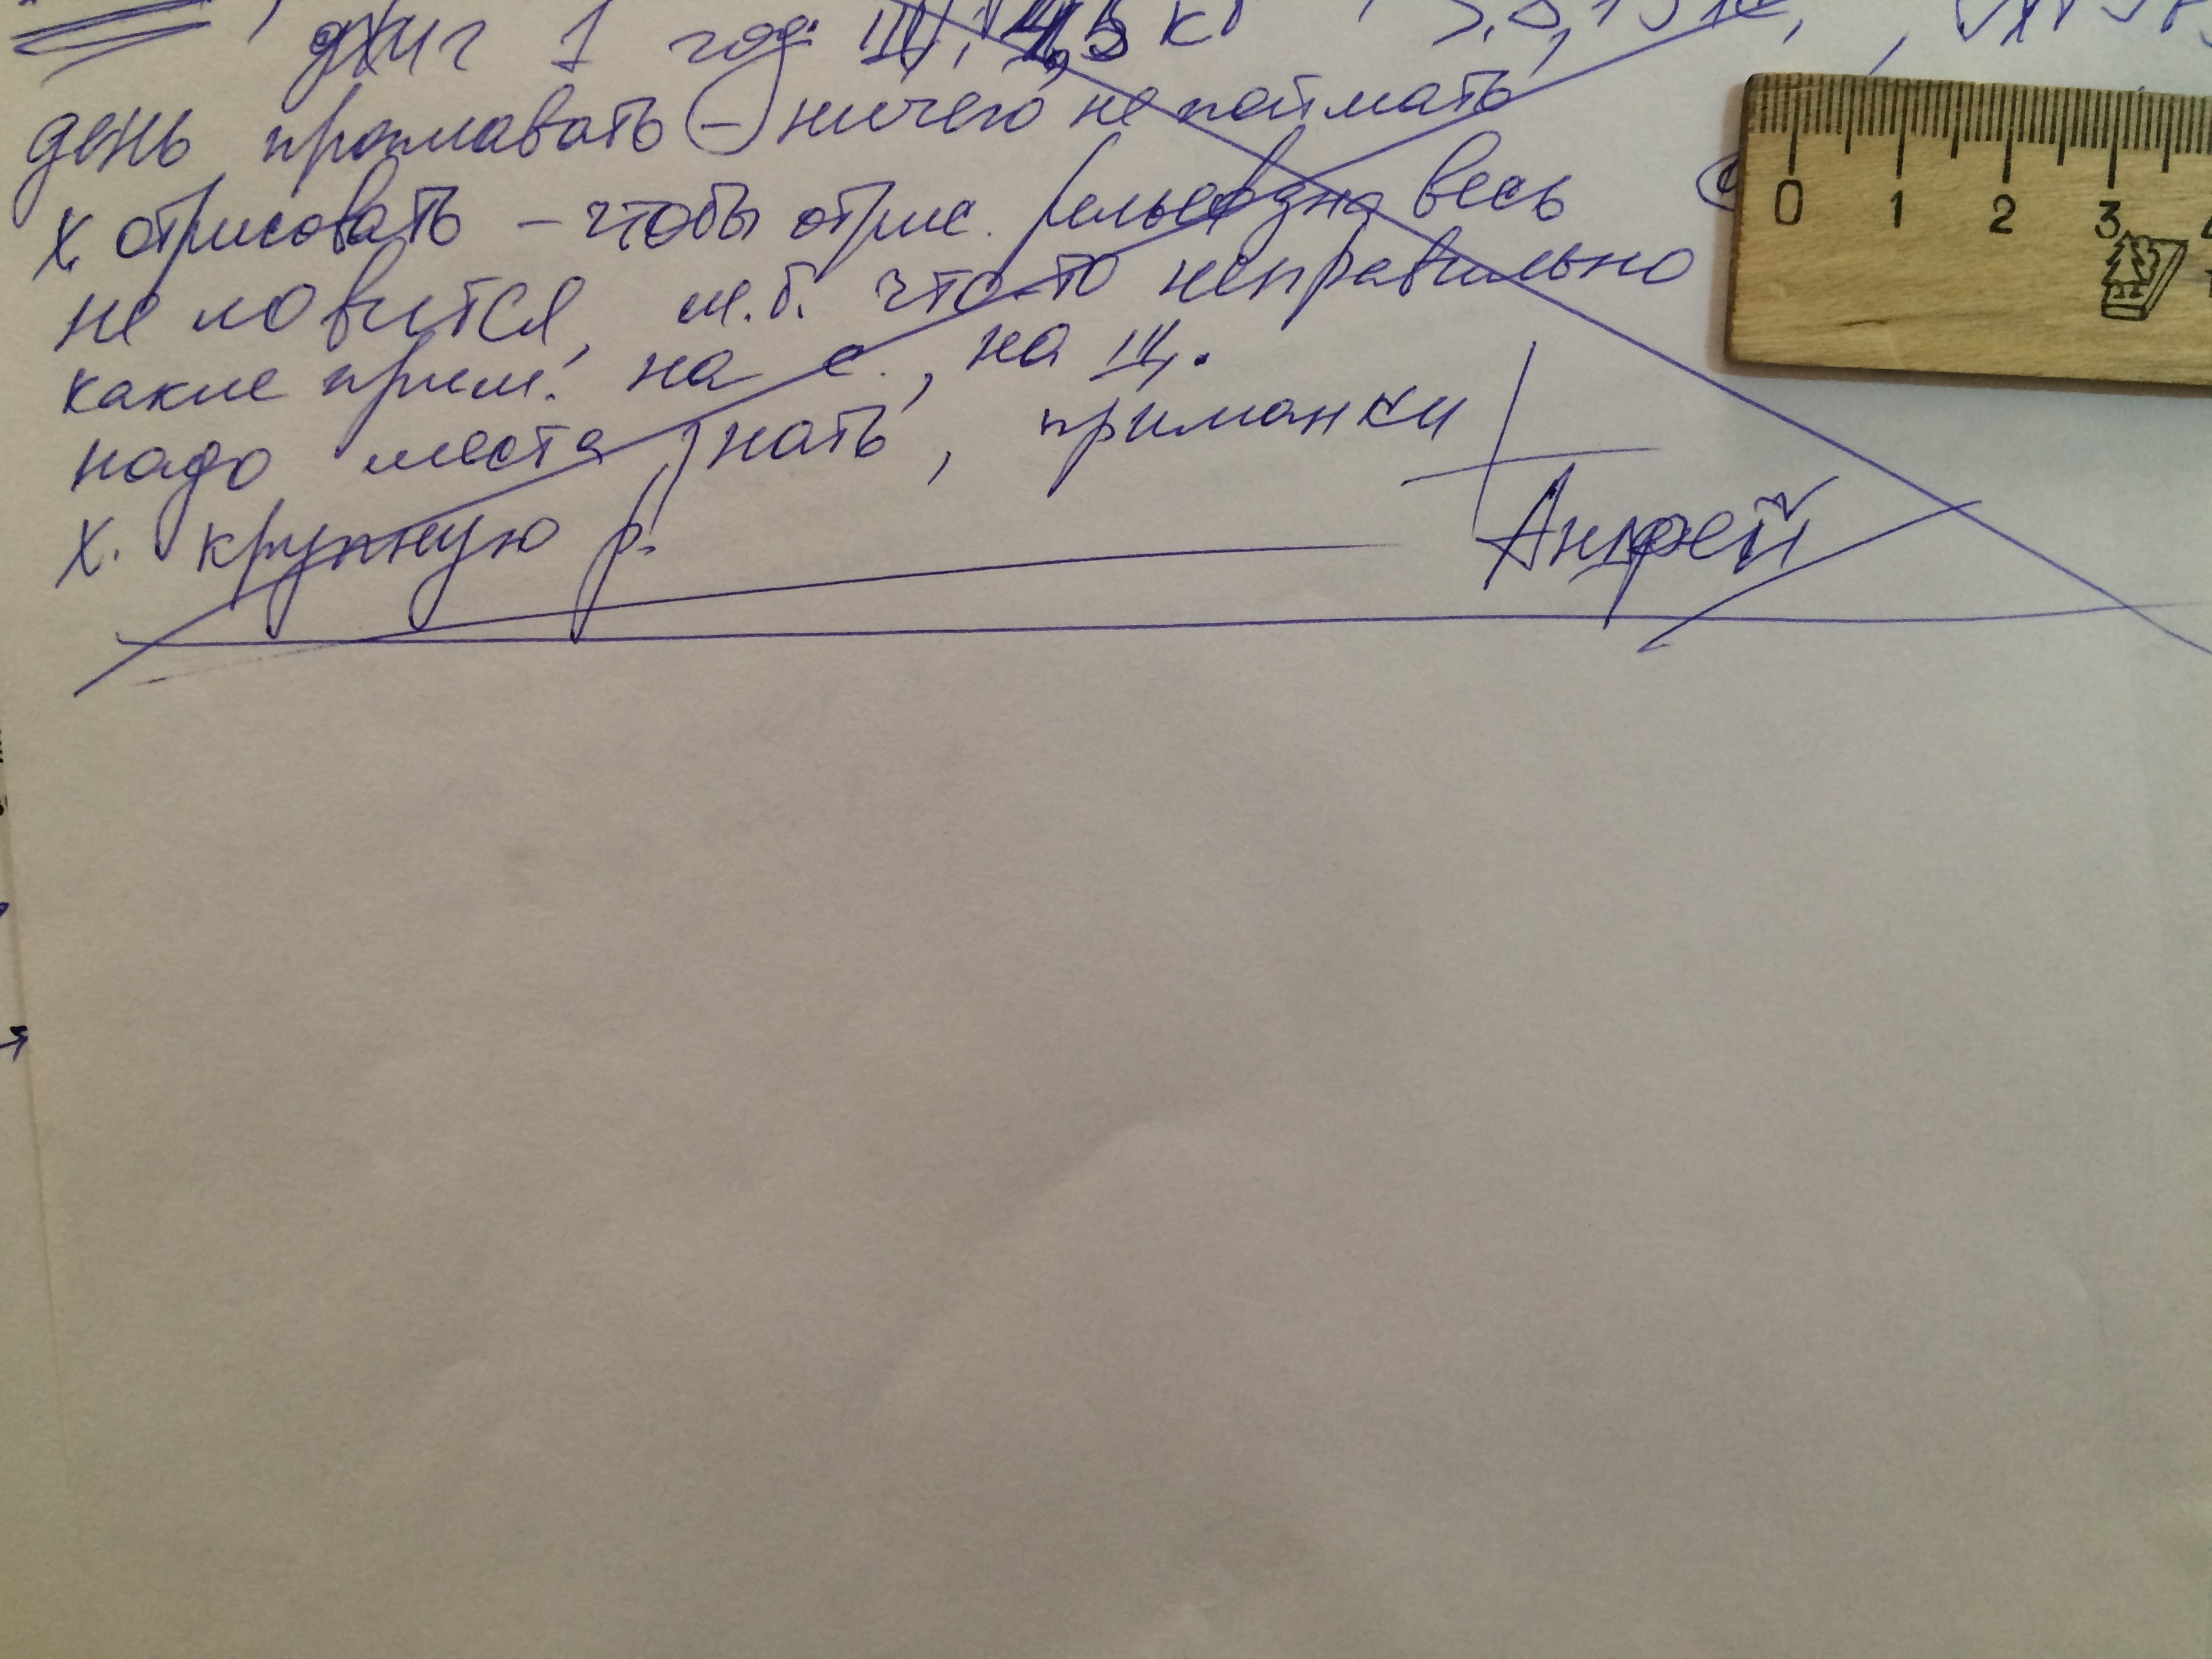 джиг 1 год. Щ. 4,5 кг
день проплавать - ничего не поймать
х. отрисовать - чтобы отрис. рельеф дна весь
не ловится, м.б. что-то неправильно
какие прим. на с., на щ.
надо места знать, приманки
х. крупную р.
Андрей
0 1 2 3